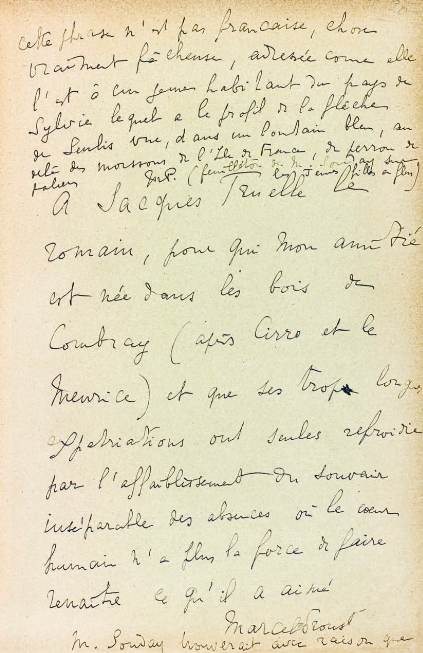 cette phrase n'est pas française, chose
vraiment fâcheuse, adressée come elle
l'est à un jeune habitant du pays de
Sylvie lequel a le profil de la flèche
de Senlis vue, dans un lointain bleu, au
delà des moissons de l'Ile de France, de perron de
M.P. (feuilleton de M. Souday sur
les Jeunes filles en fleurs)
A Jacques Truelle le
romain, pour qui mon amitié
est née dans les bois de
Combray (après Cirro et le
Meurice) et que ses trop longues
expatriations ont seules refroidie
par l'affaiblissement du souvenir
inséparable des absences où le coeur
humain n'a plus la force de faire
renaître ce qu'il a aimé
Marcel Proust
M. Souday trouverait avec raison que